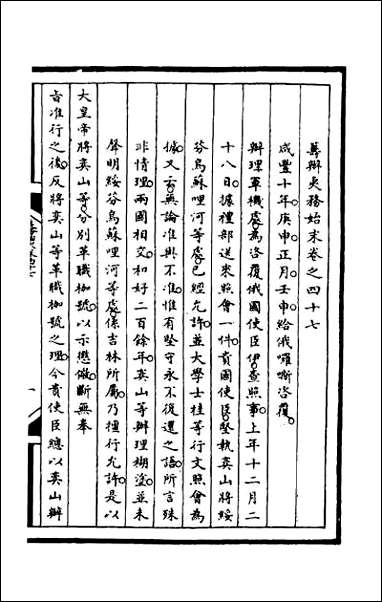 籌辦夷務始末卷之四十七
咸豐十年庚申正月壬申給俄囉嘶咨覆
辦理軍機處為咨覆俄國使臣伊查照事上年十二月二
十八日據禮部送來照會一件貴國使臣堅執奕山將綏
芬烏蘇哩河等處已經允許並大學士桂等行文照會為
據又云無論准與不准惟有堅守永不從還之語所言殊
非情理兩國相交和好二百餘年奕山等辦理糊塗並未
聲明綏芬烏蘇哩河等處係吉林所屬乃擅行允許是以
大皇帝將奕山等分別革職枷號以示懲儆斷無奉
旨准行之後反將奕山等革職枷號之理今貴使臣總以奕山辦